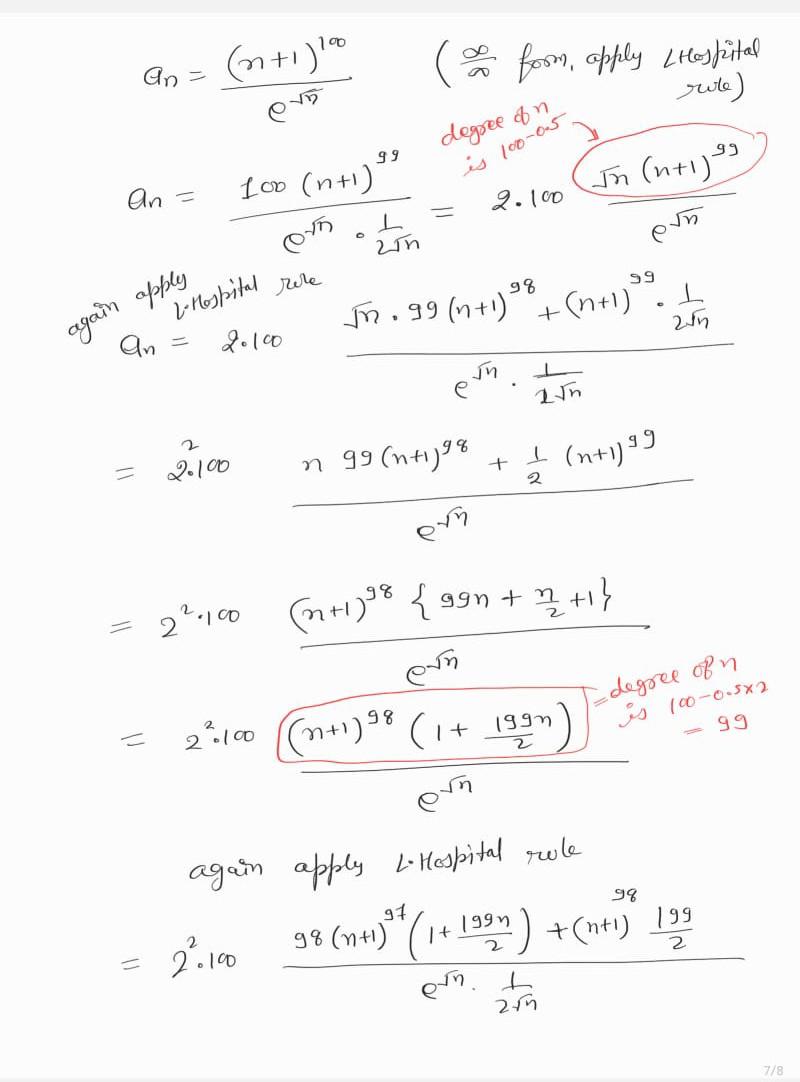 aₙ = (n+1)^100 / e^√n (∞/∞ form, apply LHospital rule)
degree of n is 100-0.5
aₙ = 100 (n+1)^99 / e^√n · 1/2√n = 2·100 √n (n+1)^99 / e^√n
again apply L-Hospital rule
aₙ = 2·100 √n · 99 (n+1)^98 + (n+1)^99 · 1/2√n / e^√n · 1/2√n
= 2^2·100 n 99 (n+1)^98 + 1/2 (n+1)^99 / e^√n
= 2^2·100 (n+1)^98 { 99n + n/2 + 1 } / e^√n
= 2^2·100 (n+1)^98 (1 + 199n/2) / e^√n
= degree of n is 100-0.5×2
= 99
again apply L·Hospital rule
= 2^2·100 98 (n+1)^97 (1 + 199n/2) + (n+1)^98 199/2 / e^√n · 1/2√n
7/8